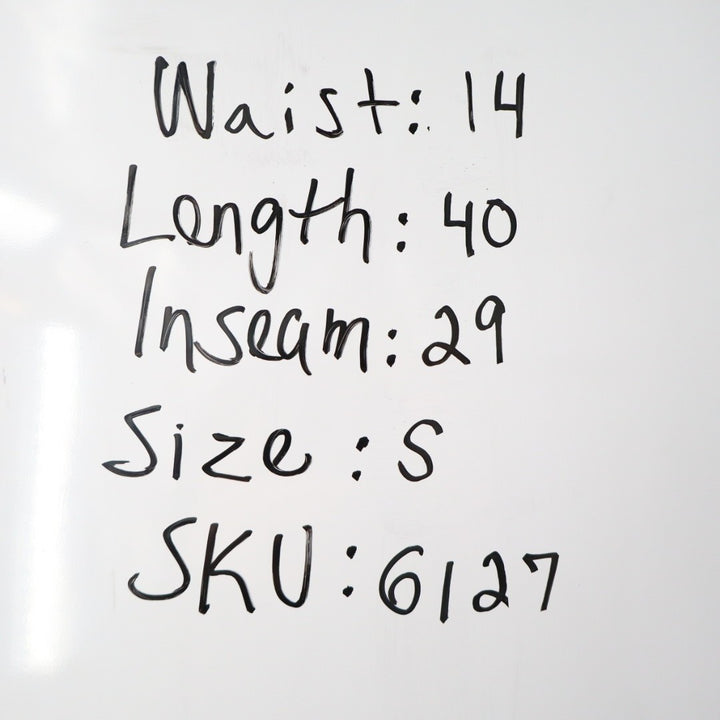 Waist: 14
Length: 40
Inseam: 29
Size: S
SKU: 6127